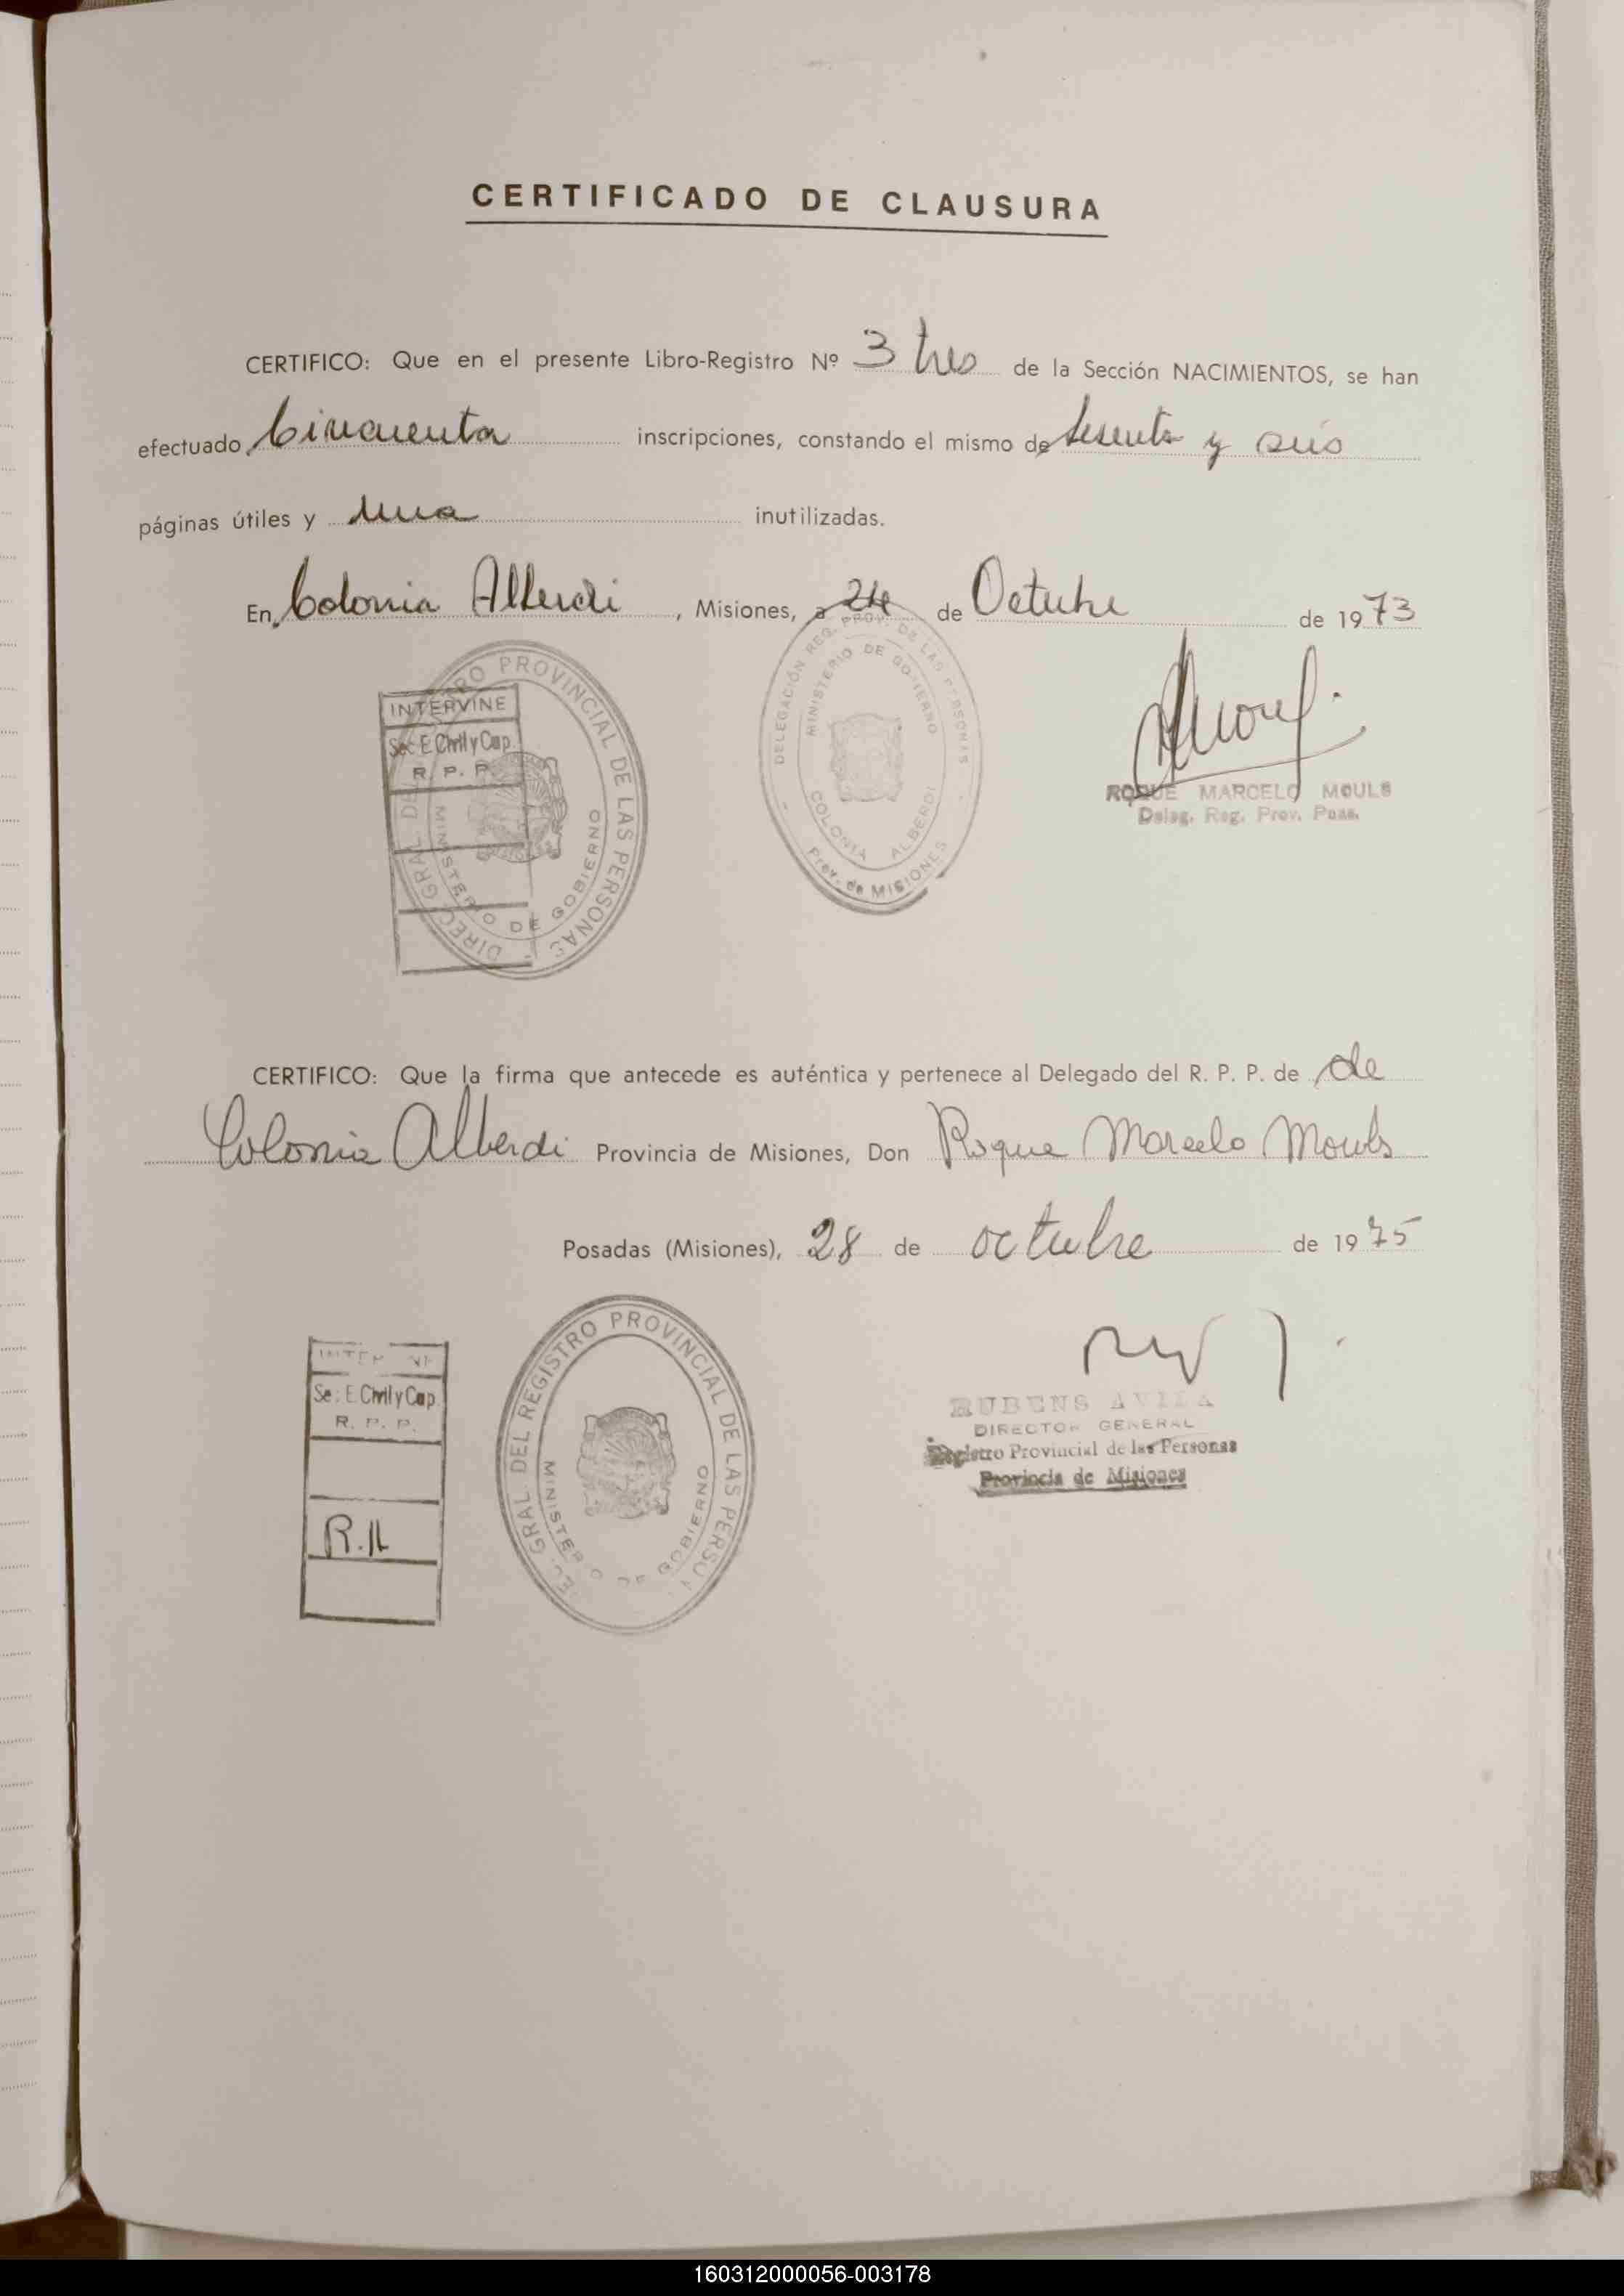 CERTIFICADO DE CLAUSURA
CERTIFICO: Que en el presente Libro-Registro Nº 3 tres de la Sección NACIMIENTOS, se han
efectuado Cincuenta inscripciones, constando el mismo de sesenta y seis
páginas útiles y una inutilizadas.
En Colonia Alberdi, Misiones, a 24 de Octubre de 1973
INTERVINE
Sec. E. Civil y Cap.
R. P. P.
DIREC. GRAL. DEL REGISTRO PROVINCIAL DE LAS PERSONAS
MINISTERIO DE GOBIERNO
DELEGACIÓN REG. PROV. DE LAS PERSONAS
MINISTERIO DE GOBIERNO
COLONIA ALBERDI
Prov. de MISIONES
ROQUE MARCELO MOULS
Deleg. Reg. Prov. Pers.
CERTIFICO: Que la firma que antecede es auténtica y pertenece al Delegado del R. P. P. de de
Colonia Alberdi Provincia de Misiones, Don Roque Marcelo Mouls
Posadas (Misiones), 28 de octubre de 1975
INTERVINE
Sec. E. Civil y Cap.
R. P. P.
R.H
GRAL. DEL REGISTRO PROVINCIAL DE LAS PERSON
MINISTERIO DE GOBIERNO
RUBENS AVILA
DIRECTOR GENERAL
Registro Provincial de las Personas
Provincia de Misiones
160312000056-003178